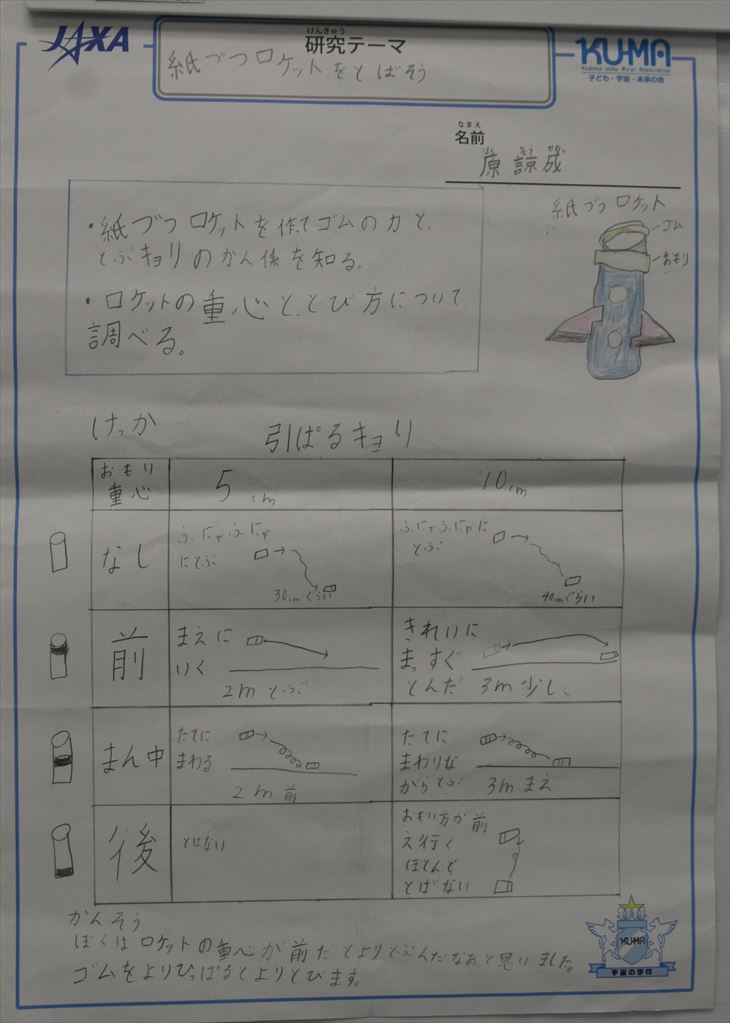 JAXA
けんきゅう
研究テーマ
紙づつロケットをとばそう
KU-MA
Kodomo Uchu Mirai Association
子ども・宇宙・未来の会
なまえ
名前
原 諒成
・紙づつロケットを作てゴムの力と、
とぶキョリのかん係を知る。
・ロケットの重心と、とび方について
調べる。
紙づつロケット
ゴム
おもり
けっか
引ぱるキョリ
おもり
重心
5cm
10cm
なし
ふにゃふにゃ
にとぶ
30cmぐらい
ふにゃふにゃに
とぶ
40cmぐらい
前
まえに
いく
2mとぶ
きれいに
まっすぐ
とんだ 3m少し
まん中
たてに
まわる
2m前
たてに
まわりな
がらとぶ
3mまえ
後
とばない
おもい方が前
え行く
ほとんで
とばない
かんそう
ぼくはロケットの重心が前だとよりとぶんだなあと思いました。
ゴムをよりひっぱるとよりとびます。
KU-MA
宇宙の学校